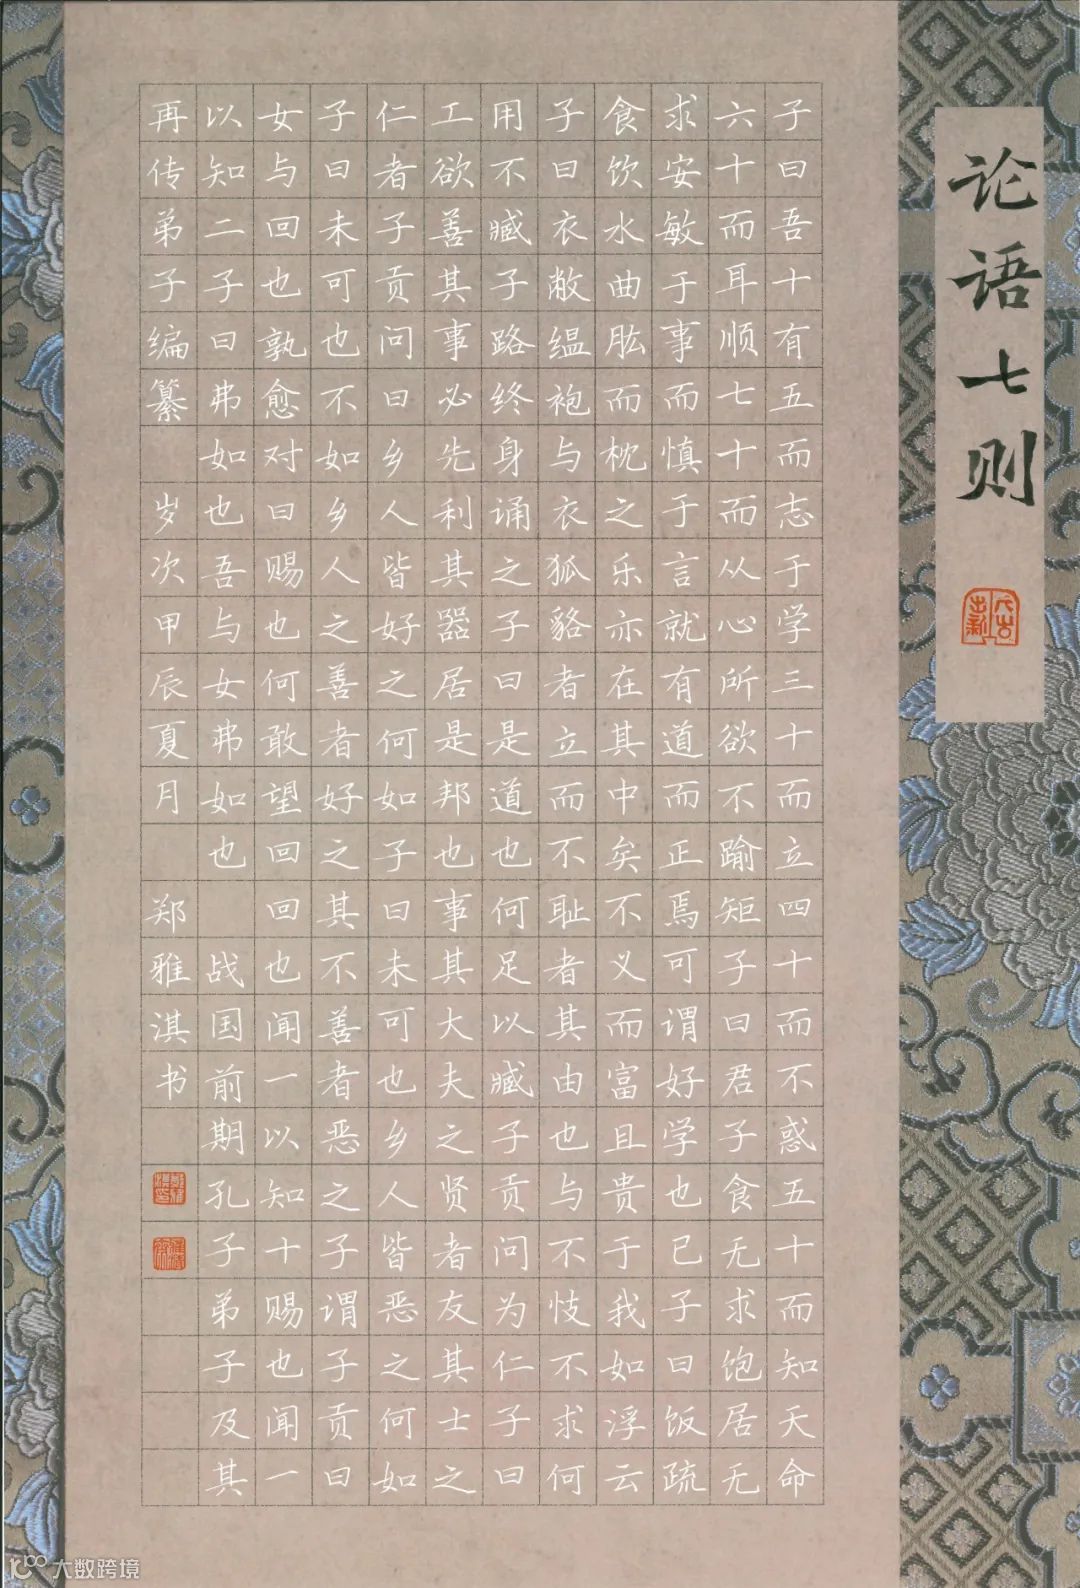 论语七则
子曰吾十有五而志于学三十而立四十而不惑五十而知天命
六十而耳顺七十而从心所欲不踰矩子曰君子食无求饱居无
求安敏于事而慎于言就有道而正焉可谓好学也已子曰饭疏
食饮水曲肱而枕之乐亦在其中矣不义而富且贵于我如浮云
子曰衣敝缊袍与衣狐貉者立而不耻者其由也与不忮不求何
用不臧子路终身诵之子曰是道也何足以臧子贡问为仁子曰
工欲善其事必先利其器居是邦也事其大夫之贤者友其士之
仁者子贡问曰乡人皆好之何如子曰未可也乡人皆恶之何如
子曰未可也不如乡人之善者好之其不善者恶之子谓子贡曰
女与回也孰愈对曰赐也何敢望回回也闻一以知十赐也闻一
以知二子曰弗如也吾与女弗如也 战国前期孔子弟子及其
再传弟子编纂 岁次甲辰夏月 郑雅淇书
大数跨境